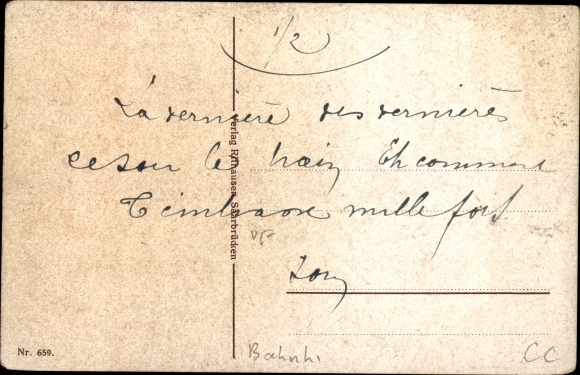 1/2
La dernière des dernières
ce soir le train Eh comment
T'embrasse mille fois
Verlag R. Hausen Saarbrücken
Nr. 659.
CC